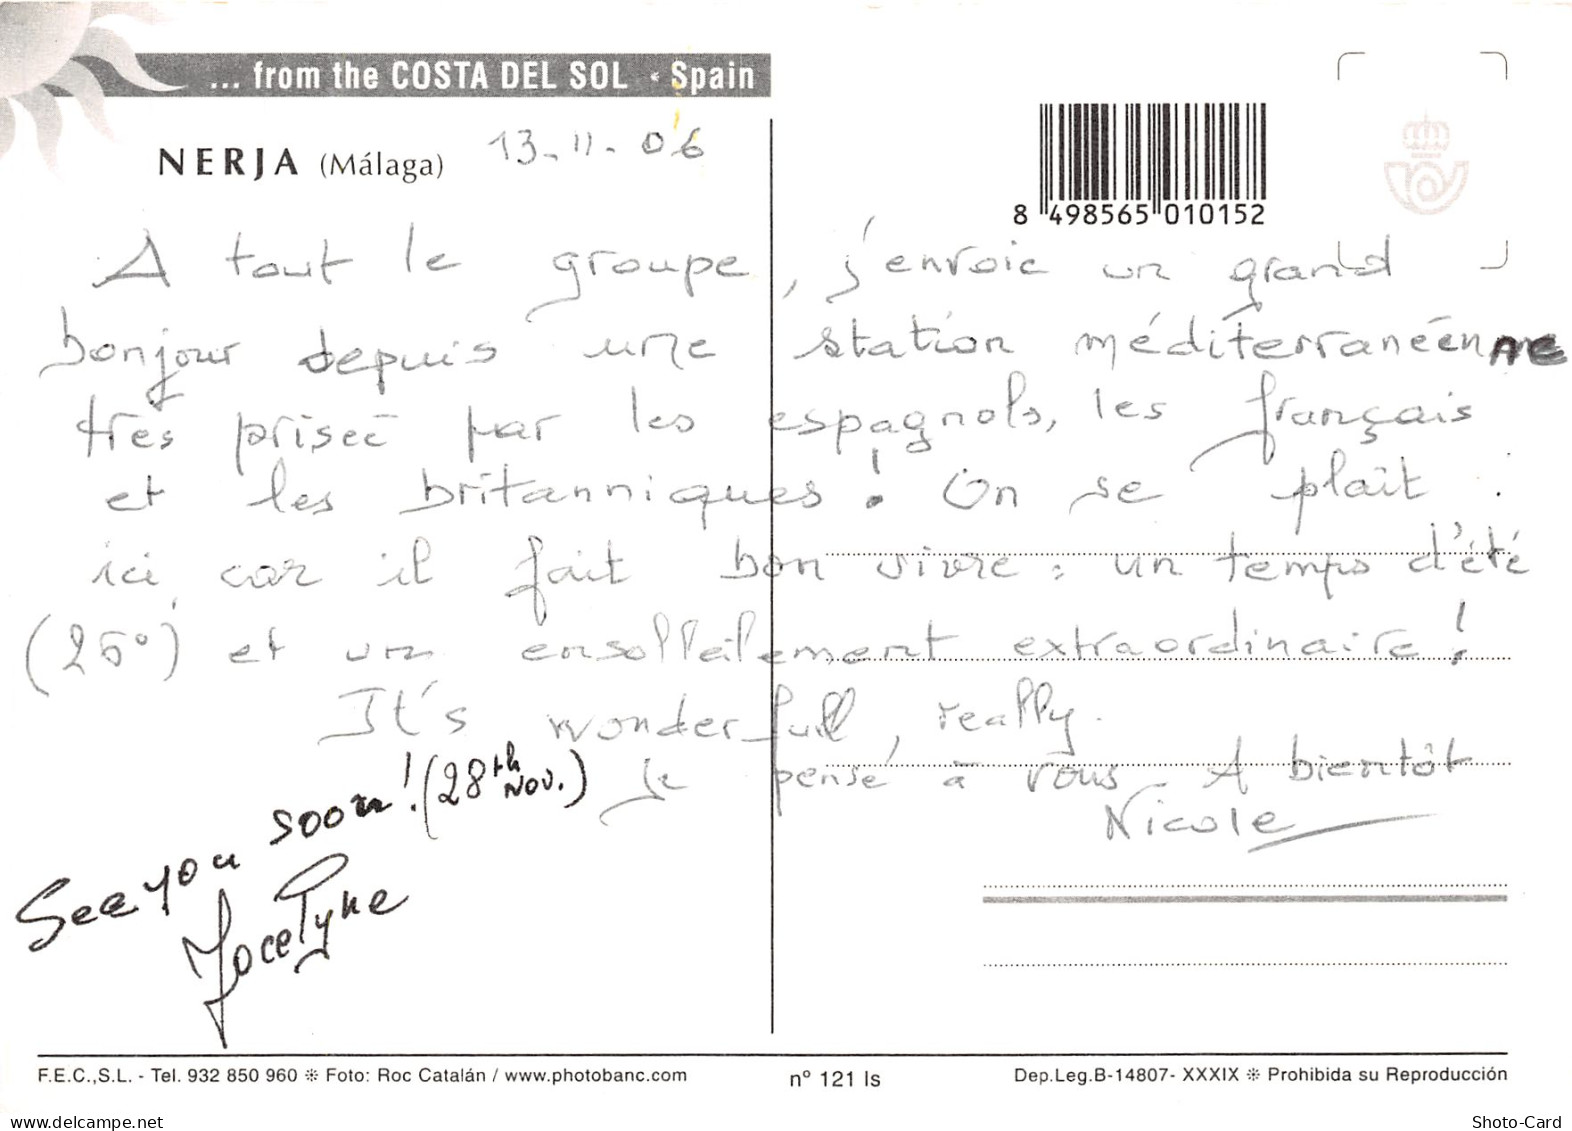 ... from the COSTA DEL SOL • Spain
NERJA (Málaga) 13-11-06
8 498565 010152
A tout le groupe, j'envoie un grand
bonjour depuis une station méditerranéenne
très prisée par les espagnols, les français
et les britanniques! On se plaît
ici car il fait bon vivre : un temps d'été
(25°) et un ensolleilement extraordinaire!
It's wonderfull, really.
Je pense à vous. A bientôt
Nicole
See you soon! (28th Nov.)
Jocelyne
F.E.C.,S.L. - Tel. 932 850 960 ❊ Foto: Roc Catalán / www.photobanc.com nº 121 ls Dep.Leg.B-14807- XXXIX ❊ Prohibida su Reproducción
www.delcampe.net Shoto-Card